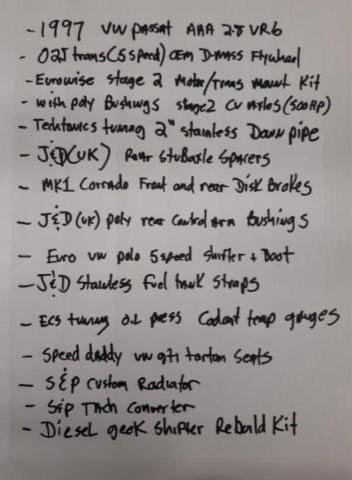 - 1997 VW passat AAA 2.8 VR6
- 02J trans(5 speed) OEM D-mass Flywheel
- Eurowise stage 2 Motor/Trans mount Kit
- with poly Bushings stage 2 CV Axles (500HP)
- Techtonics tuning 2" stainless Down pipe
- J&D(UK) Rear Stub axle spacers
- MK1 Corrado Front and rear Disk Brakes
- J&D(UK) poly rear Control Arm Bushings
- Euro VW polo 5 speed shifter + Boot
- J&D Stainless fuel tank straps
- ECS tuning oil press Coolant temp gauges
- Speed daddy VW gti tartan seats
- S&P custom Radiator
- Sip Tach Converter
- Diesel geek Shifter Rebuild Kit